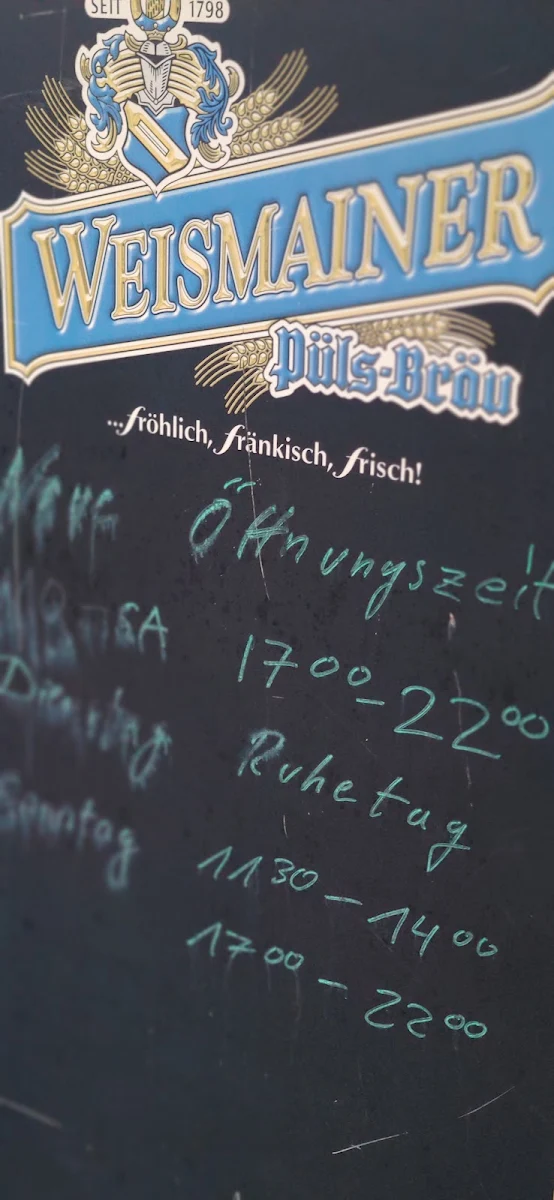 SEIT 1798
WEISMAINER
Püls-Bräu
...fröhlich, fränkisch, frisch!
Neue Öffnungszeit
MO - SA 17 00 - 22 00
Dienstag Ruhetag
Sonntag 11 30 - 14 00
17 00 - 22 00